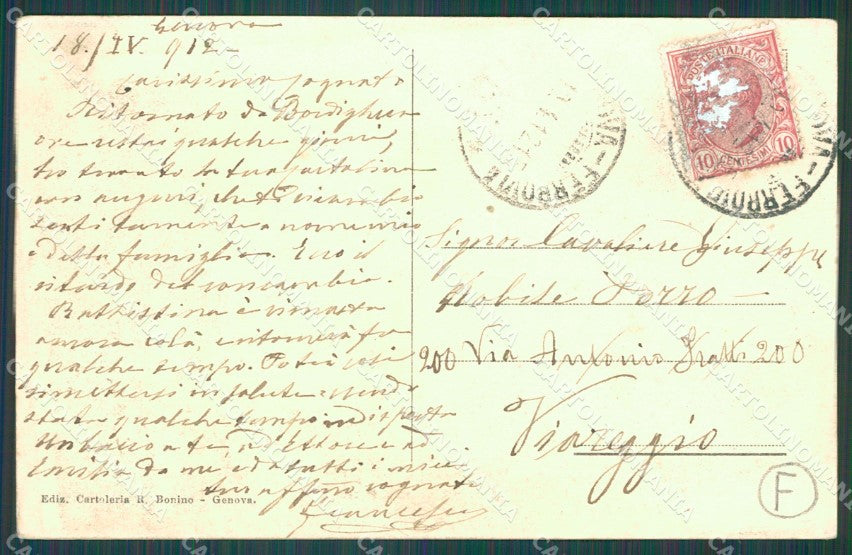 Genova
18./IV. 912 -
Carissimo cognato
Ritornato da Bordighera
ove restai qualche giorno,
tro trovato la tua cartolina
con auguri, che ti ricambio
sentitamente a nome mio
e della famiglia. Ecco il
ritardo del concambio.
Battistina è rimasta
ancora colà, e ritornerà fra
qualche tempo. Potrà così
rimettersi in salute
stata qualche tempo indisposta
Un bacio a te, a Ettore e ad
Emilia da me e da tutti i miei
tuo affmo cognato
Francesco
Ediz. Cartoleria R. Bonino - Genova.
POSTE ITALIANE
10 CENTESIMI 10
FERROVIA
FERROVIA
Signor Cavaliere Giuseppe
Nobile Porro -
200 Via Antonio Fratti 200
Viareggio
F
CARTOLINOMANIA